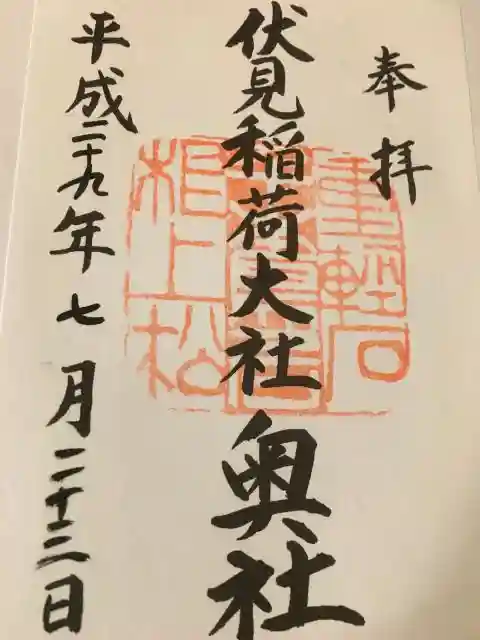 奉拝
伏見稲荷大社奥社
平成二十九年七月二十三日